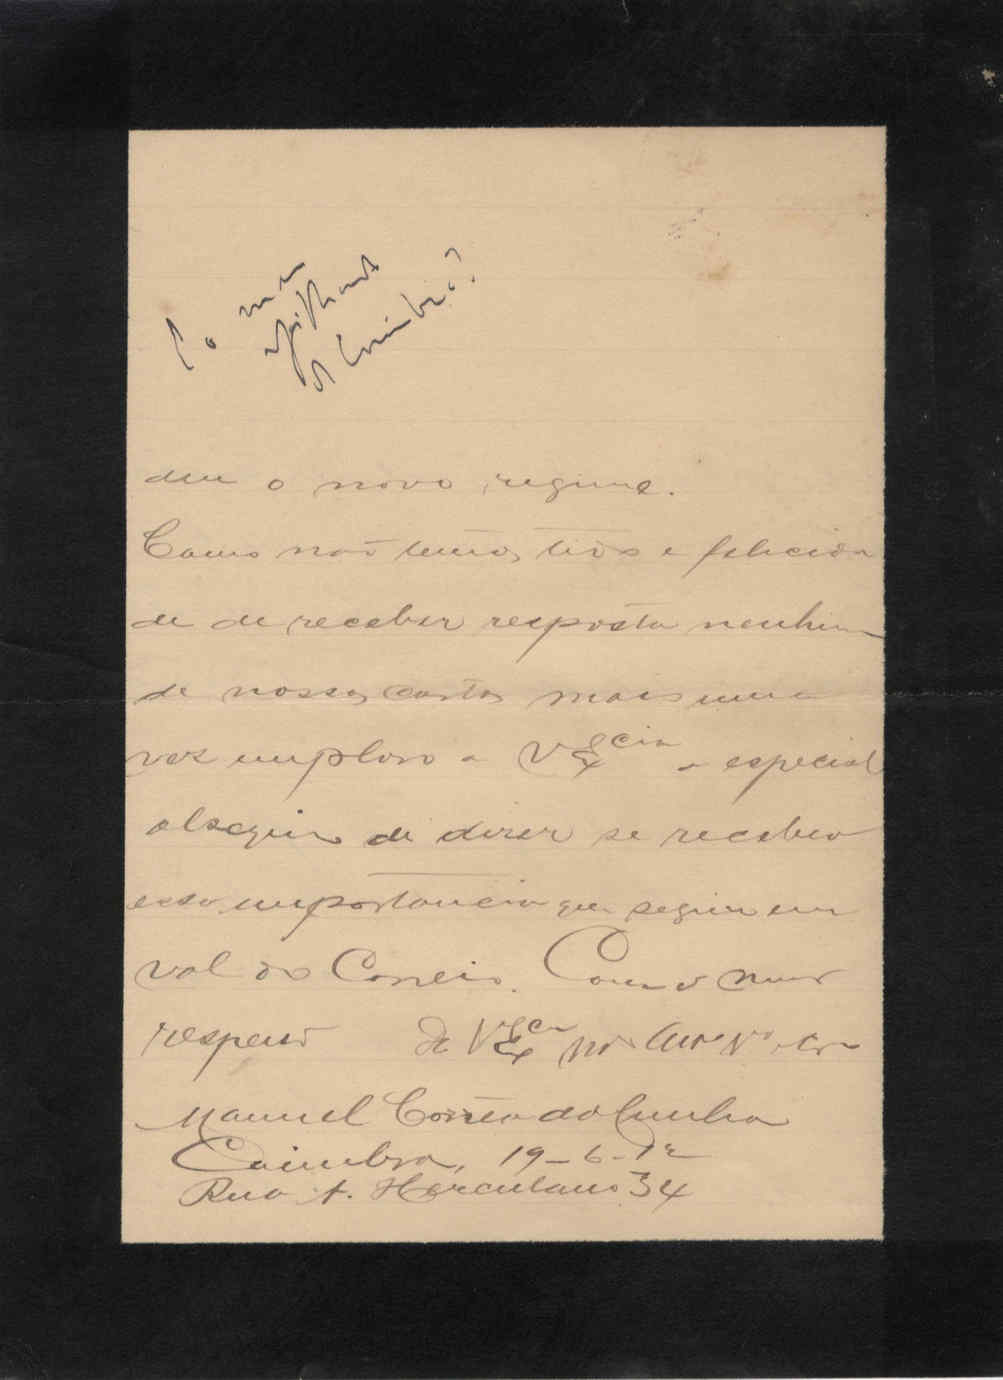 de Coimbra?
deu o novo regime.
Como não temos tido a felicida
de de receber resposta nenhuma
de nossas cartas mais uma
vez imploro a V. Ex.cia o especial
obsequio de dizer se recebeu
essa importancia que seguiu em
val do Correio. Com o maior
respeito De V. Ex.cia
Manuel Corrêa da Cunha
Coimbra, 19-6-12
Rua A. Herculano 34